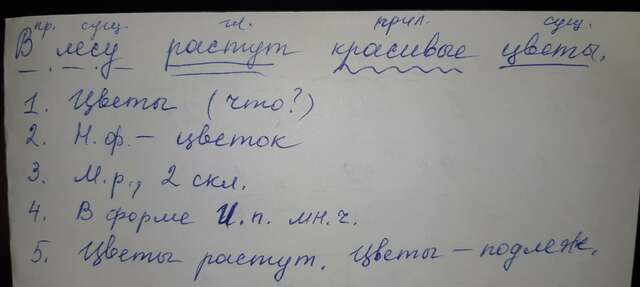 пр. сущ. гл. прил. сущ.
В лесу растут красивые цветы.
1. Цветы (что?)
2. Н.ф. – цветок
3. М.р., 2 скл.
4. В форме И.п. мн.ч.
5. Цветы растут. Цветы – подлеж.